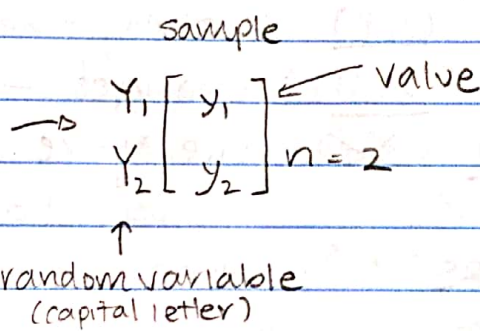 sample
Y₁ [ y₁ ] value
Y₂ [ y₂ ] n = 2
random variable
(capital letter)